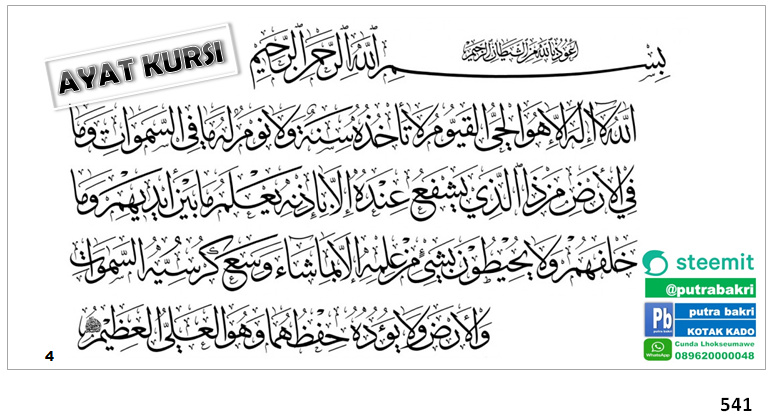 AYAT KURSI
اعوذ بالله من الشيطان الرجيم
بسم الله الرحمن الرحيم
الله لا إله إلا هو الحي القيوم لا تأخذه سنة ولا نوم له ما في السموات وما
في الأرض من ذا الذي يشفع عنده إلا بإذنه يعلم ما بين أيديهم وما
خلفهم ولا يحيطون بشيئ من علمه إلا بما شاء وسع كرسيه السموات
والأرض ولا يؤده حفظهما وهو العلي العظيم
steemit
@putrabakri
Pb
putra bakri
putra bakri
KOTAK KADO
WhatsApp
Cunda Lhokseumawe
089620000048
4
541